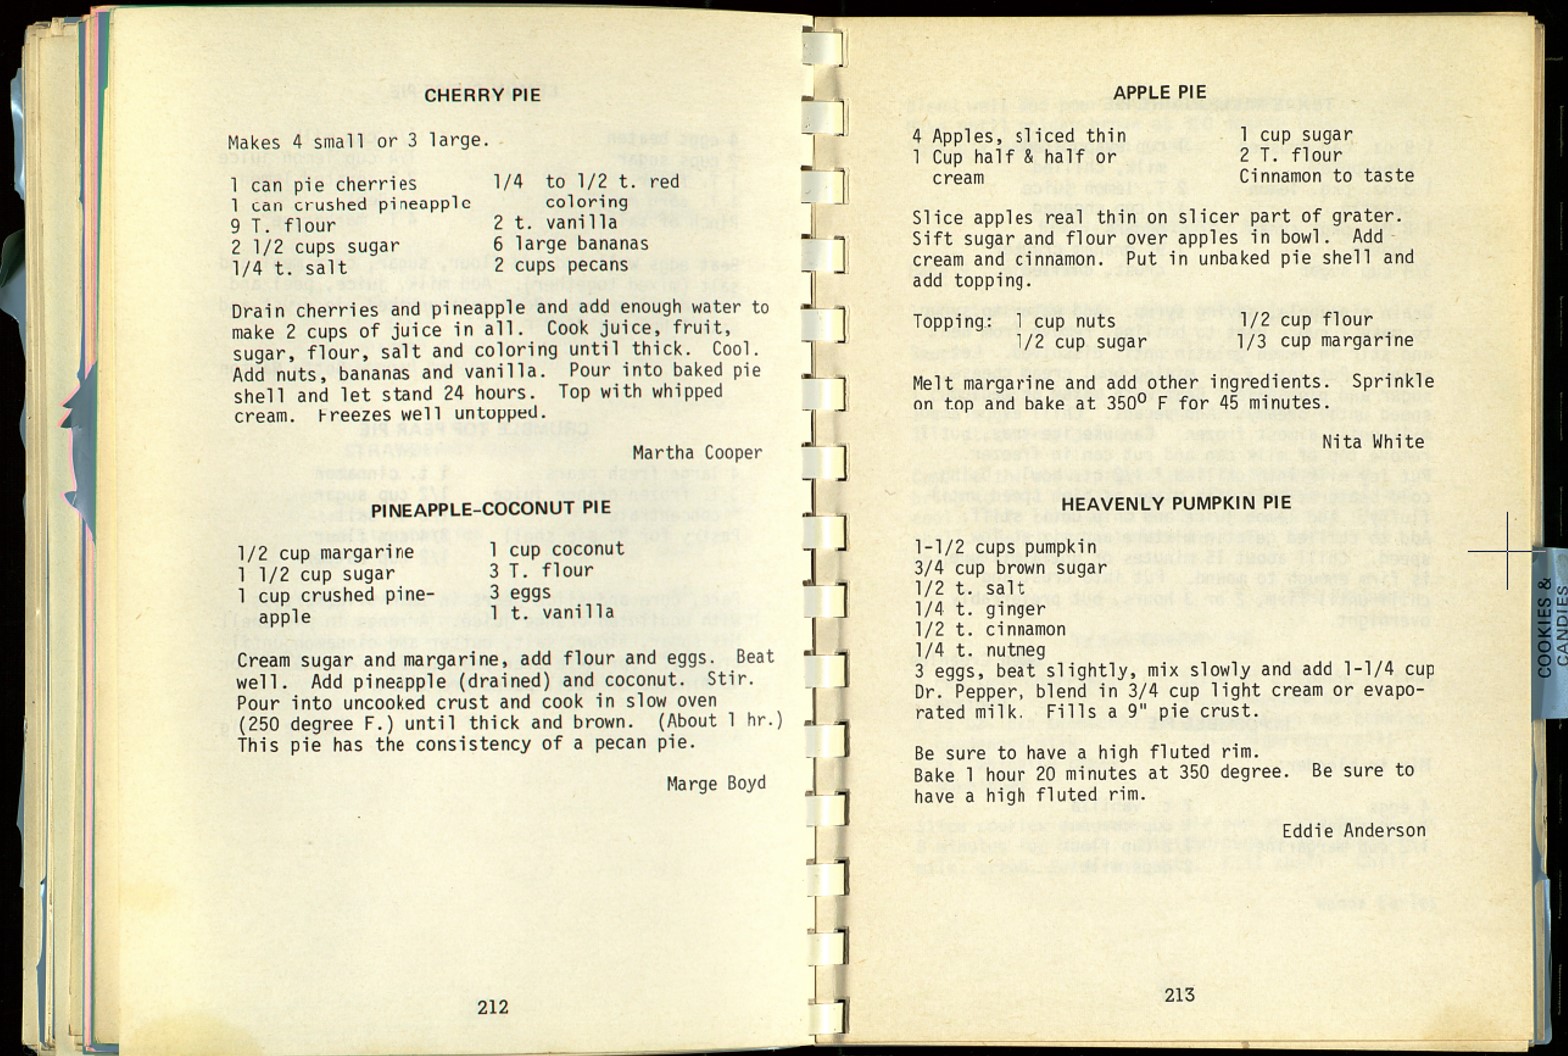 CHERRY PIE
Makes 4 small or 3 large.
1 can pie cherries
1 can crushed pineapple
9 T. flour
2 1/2 cups sugar
1/4 t. salt
1/4 to 1/2 t. red
coloring
2 t. vanilla
6 large bananas
2 cups pecans
Drain cherries and pineapple and add enough water to
make 2 cups of juice in all. Cook juice, fruit,
sugar, flour, salt and coloring until thick. Cool.
Add nuts, bananas and vanilla. Pour into baked pie
shell and let stand 24 hours. Top with whipped
cream. Freezes well untopped.
Martha Cooper
PINEAPPLE-COCONUT PIE
1/2 cup margarine
1 1/2 cup sugar
1 cup crushed pine-
apple
1 cup coconut
3 T. flour
3 eggs
1 t. vanilla
Cream sugar and margarine, add flour and eggs. Beat
well. Add pineapple (drained) and coconut. Stir.
Pour into uncooked crust and cook in slow oven
(250 degree F.) until thick and brown. (About 1 hr.)
This pie has the consistency of a pecan pie.
Marge Boyd
212
APPLE PIE
4 Apples, sliced thin
1 Cup half & half or
cream
1 cup sugar
2 T. flour
Cinnamon to taste
Slice apples real thin on slicer part of grater.
Sift sugar and flour over apples in bowl. Add
cream and cinnamon. Put in unbaked pie shell and
add topping.
Topping: 1 cup nuts
1/2 cup sugar
1/2 cup flour
1/3 cup margarine
Melt margarine and add other ingredients. Sprinkle
on top and bake at 350° F for 45 minutes.
Nita White
HEAVENLY PUMPKIN PIE
1-1/2 cups pumpkin
3/4 cup brown sugar
1/2 t. salt
1/4 t. ginger
1/2 t. cinnamon
1/4 t. nutmeg
3 eggs, beat slightly, mix slowly and add 1-1/4 cup
Dr. Pepper, blend in 3/4 cup light cream or evapo-
rated milk. Fills a 9" pie crust.
Be sure to have a high fluted rim.
Bake 1 hour 20 minutes at 350 degree. Be sure to
have a high fluted rim.
Eddie Anderson
213
COOKIES &
CANDIES